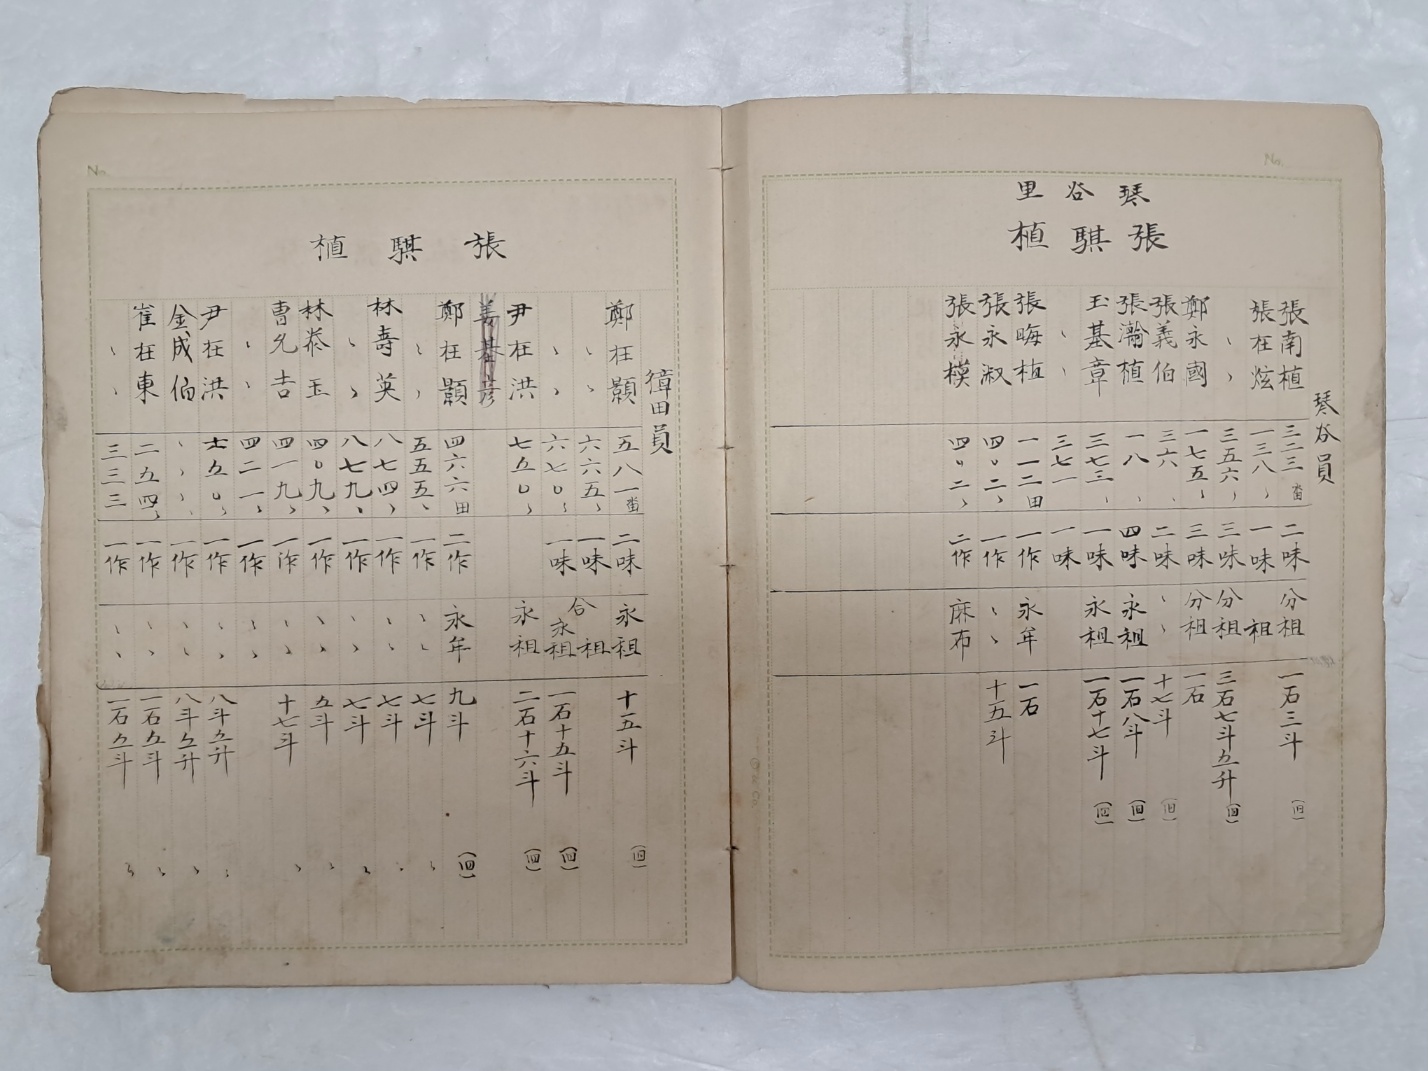 No.
琴谷里
張騏植
琴谷員
張南植 三二三畓 二味 分祖 一石三斗 (旧)
張在炫 一三八〻 一味 祖
〻〻 三五六〻 三味 分祖 三石七斗五升 (旧)
鄭永國 一七五〻 三味 分祖 一石
張義伯 三六〻 二味 〻〻 十七斗 (旧)
張瀚植 一八〻 四味 永祖 一石八斗 (旧)
玉基章 三七三〻 一味 永祖 一石十七斗 (四)
〻〻 三七一 一味
張晦植 一一二田 一作 永牟 一石
張永淑 四〇二〻 一作 〻〻 十五斗
張永模 四〇二〻 二作 麻布
No.
張騏植
獐田員
鄭在顥 五八一畓 二味 永祖 十五斗 (旧)
〻〻 六六五〻 一味 合祖
〻〻 六七〇〻 一味 永祖 一石十五斗 (四)
尹在洪 七五〇〻 永祖 二石十六斗 (四)
姜基彦
鄭在顥 四六六田 二作 永牟 九斗 (四)
〻〻 五五五〻 一作 〻〻 七斗 〻
林壽英 八七四〻 一作 〻〻 七斗 〻
〻〻 八七九〻 一作 〻〻 七斗 〻
林恭玉 四〇九〻 一作 〻〻 五斗 〻
曺允吉 四一九〻 一作 〻〻 十七斗 〻
〻〻 四二一〻 一作 〻〻
尹在洪 七五〇〻 一作 〻〻 八斗五升 〻
金成伯 〻〻〻 一作 〻〻 八斗五升 〻
崔在東 二五四〻 一作 〻〻 一石五斗 〻
〻〻 三三三 一作 〻〻 一石五斗 〻